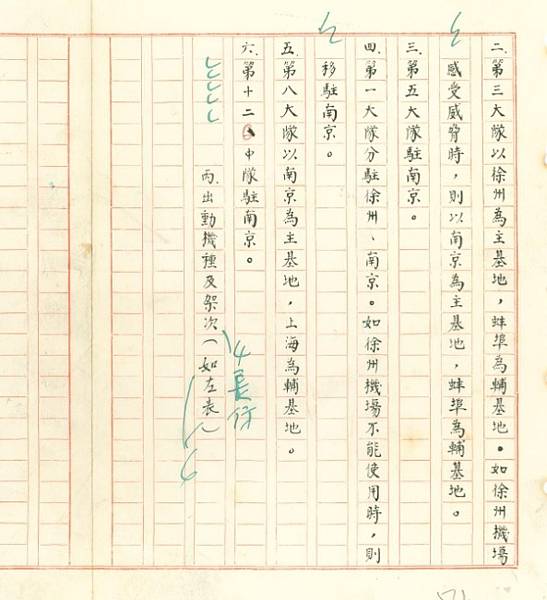 二.第三大隊以徐州為主基地,蚌埠為輔基地。如徐州機場
感受威脅時,則以南京為主基地,蚌埠為輔基地。
三.第五大隊駐南京。
四.第一大隊分駐徐州、南京。如徐州機場不能使用時,則
移駐南京。
五.第八大隊以南京為主基地,上海為輔基地。
六.第十二、中隊駐南京。
丙.出動機種及架次(如左表)